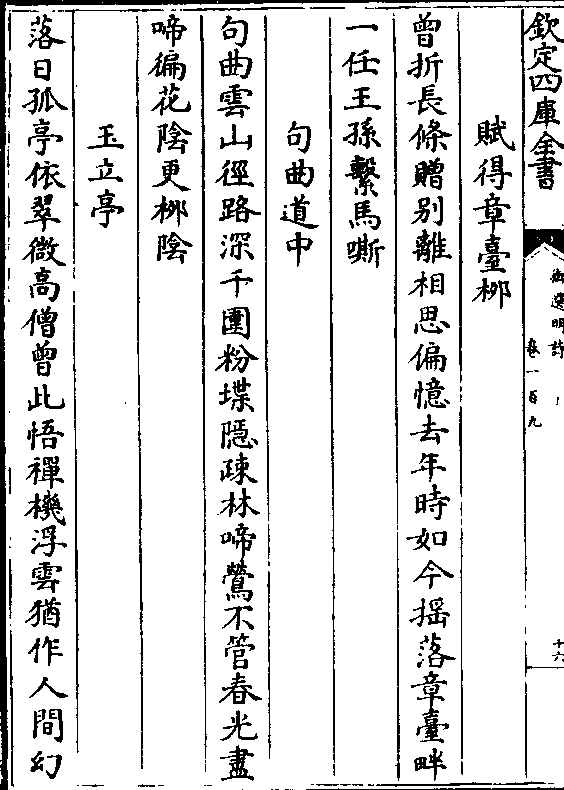 欽定四庫全書
御選明詩
卷一百九
十六
賦得章臺桞
曾折長條贈别離相思偏憶去年時如今揺落章臺畔
一任王孫繫馬嘶
句曲道中
句曲雲山徑路深千圍粉堞隱疎林啼鶯不管春光盡
啼徧花陰更桞陰
玉立亭
落日孤亭依翠微高僧曾此悟禪機浮雲猶作人間幻